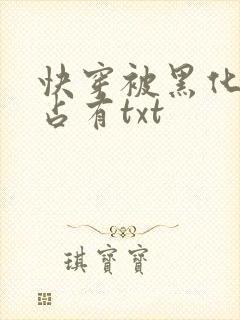 快穿被黑化
占有txt
琪寶寶